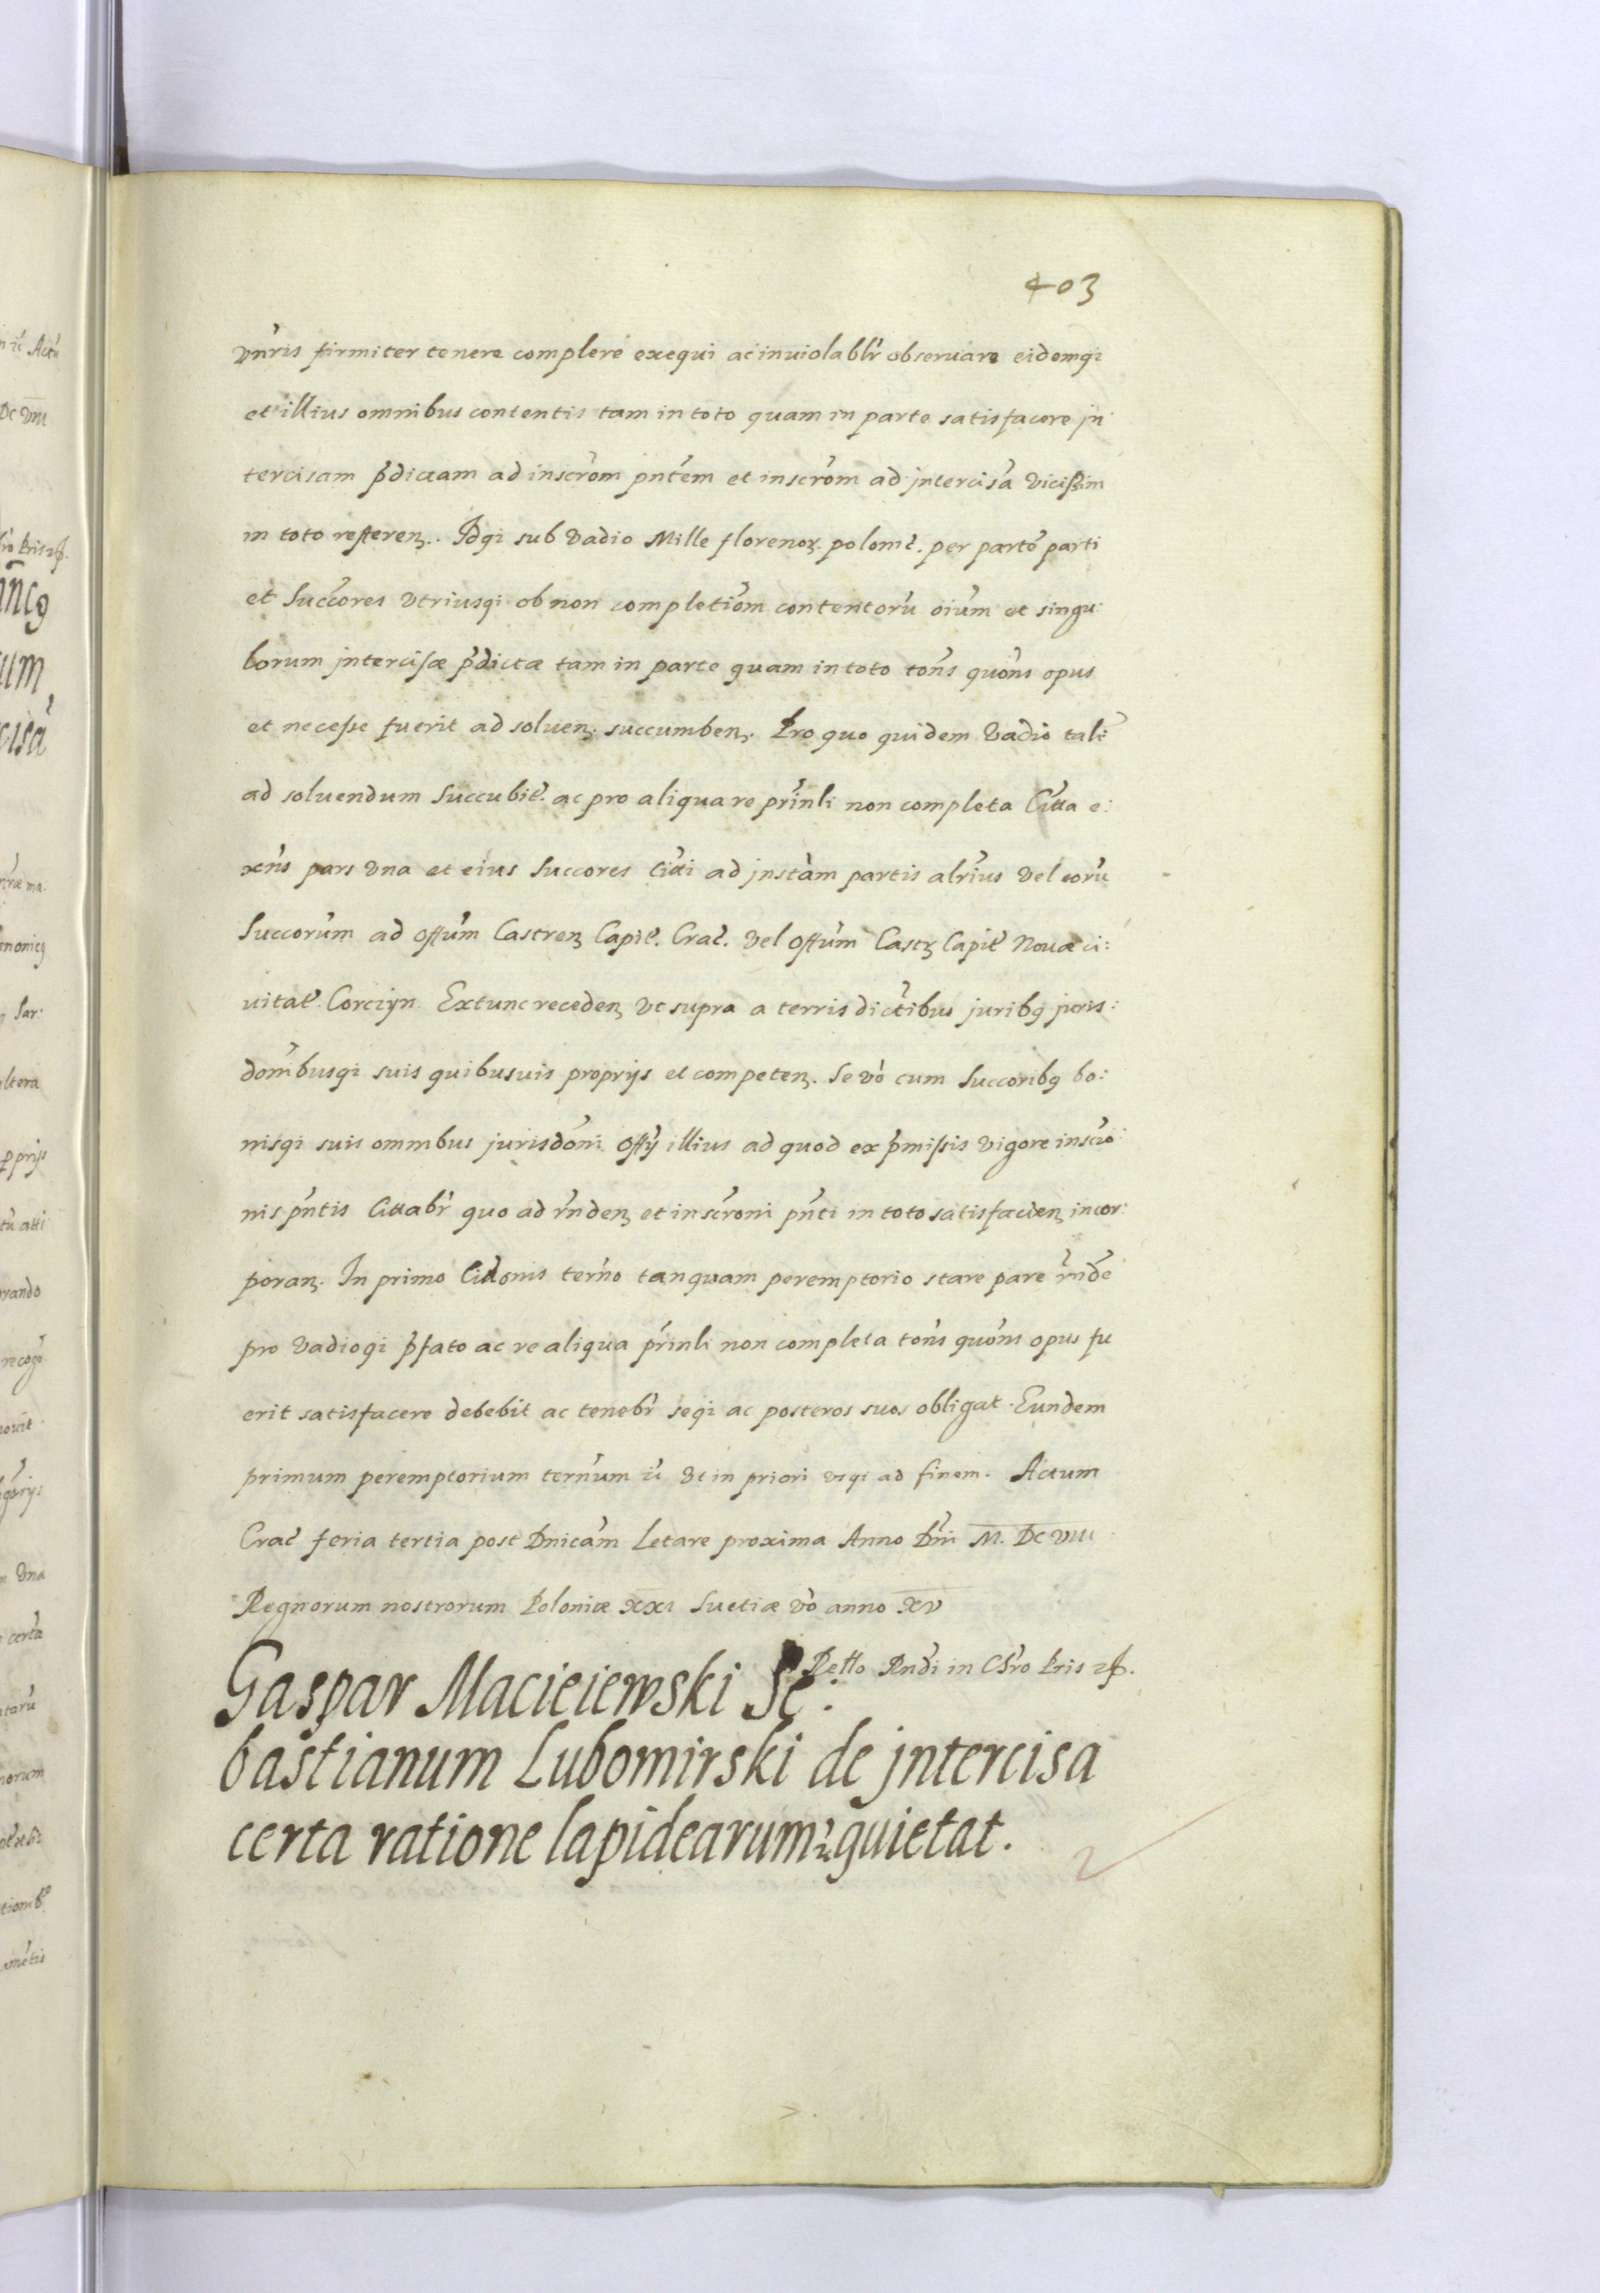 403
vnris firmiter tenere complere exequi ac inuiolablr observare eidemqi
et illius omnibus contentis tam in toto quam in parte satisfacere jn
tercisam pdictam ad inscrom pntem et inscrom ad jntercisa vicissim
in toto referen. Idqi sub vadio Mille florenoz. polonic. per parte parti
et Succores vtriusqi ob non completiom contentoru oium et singu:
lorum jntercisæ pdictæ tam in parte quam in toto tons quons opus
et necesse fuerit ad soluen. succumben. Pro quo quidem vadio tali
ad soluendum Succubit. ac pro aliqua re prinli non completa Citta e:
xns pars vna et eius Succores Citti ad jnstam partis alrius vel eoru
Succorum ad offum Castren Capit. Crac. vel offum Castr Capit Nouæ ci:
uitat. Corczyn. Extunc receden vt supra a terris dictibus juribq juris:
dombusqi suis quibusuis proprijs et competen. Se vo cum Succoribq bo:
nisqi suis omnibus jurisdoni offy illius ad quod ex pmissis vigore inscrio:
nis pntis Cittabr quo ad rnden et inscroni pnti in toto satisfacien incor:
poran. In primo Citonis terno tanquam peremptorio stare pare rnde
pro vadioqi pfato ac re aliqua prinli non completa tons quons opus fu
erit satisfacere debebit ac tenebr seqi ac posteros suos obligat. Eundem
primum peremptorium ternum it vt in priori vsqi ad finem. Actum
Crac feria tertia post Dnicam Letare proxima Anno Dni M. DC VIII
Regnorum nostrorum Poloniæ XXI Suetiæ vo anno XV
Retto Rndi in Chro Pris zp.
Gaspar Macieiewski Se:
bastianum Lubomirski de jntercisa
certa ratione lapidearum quietat.